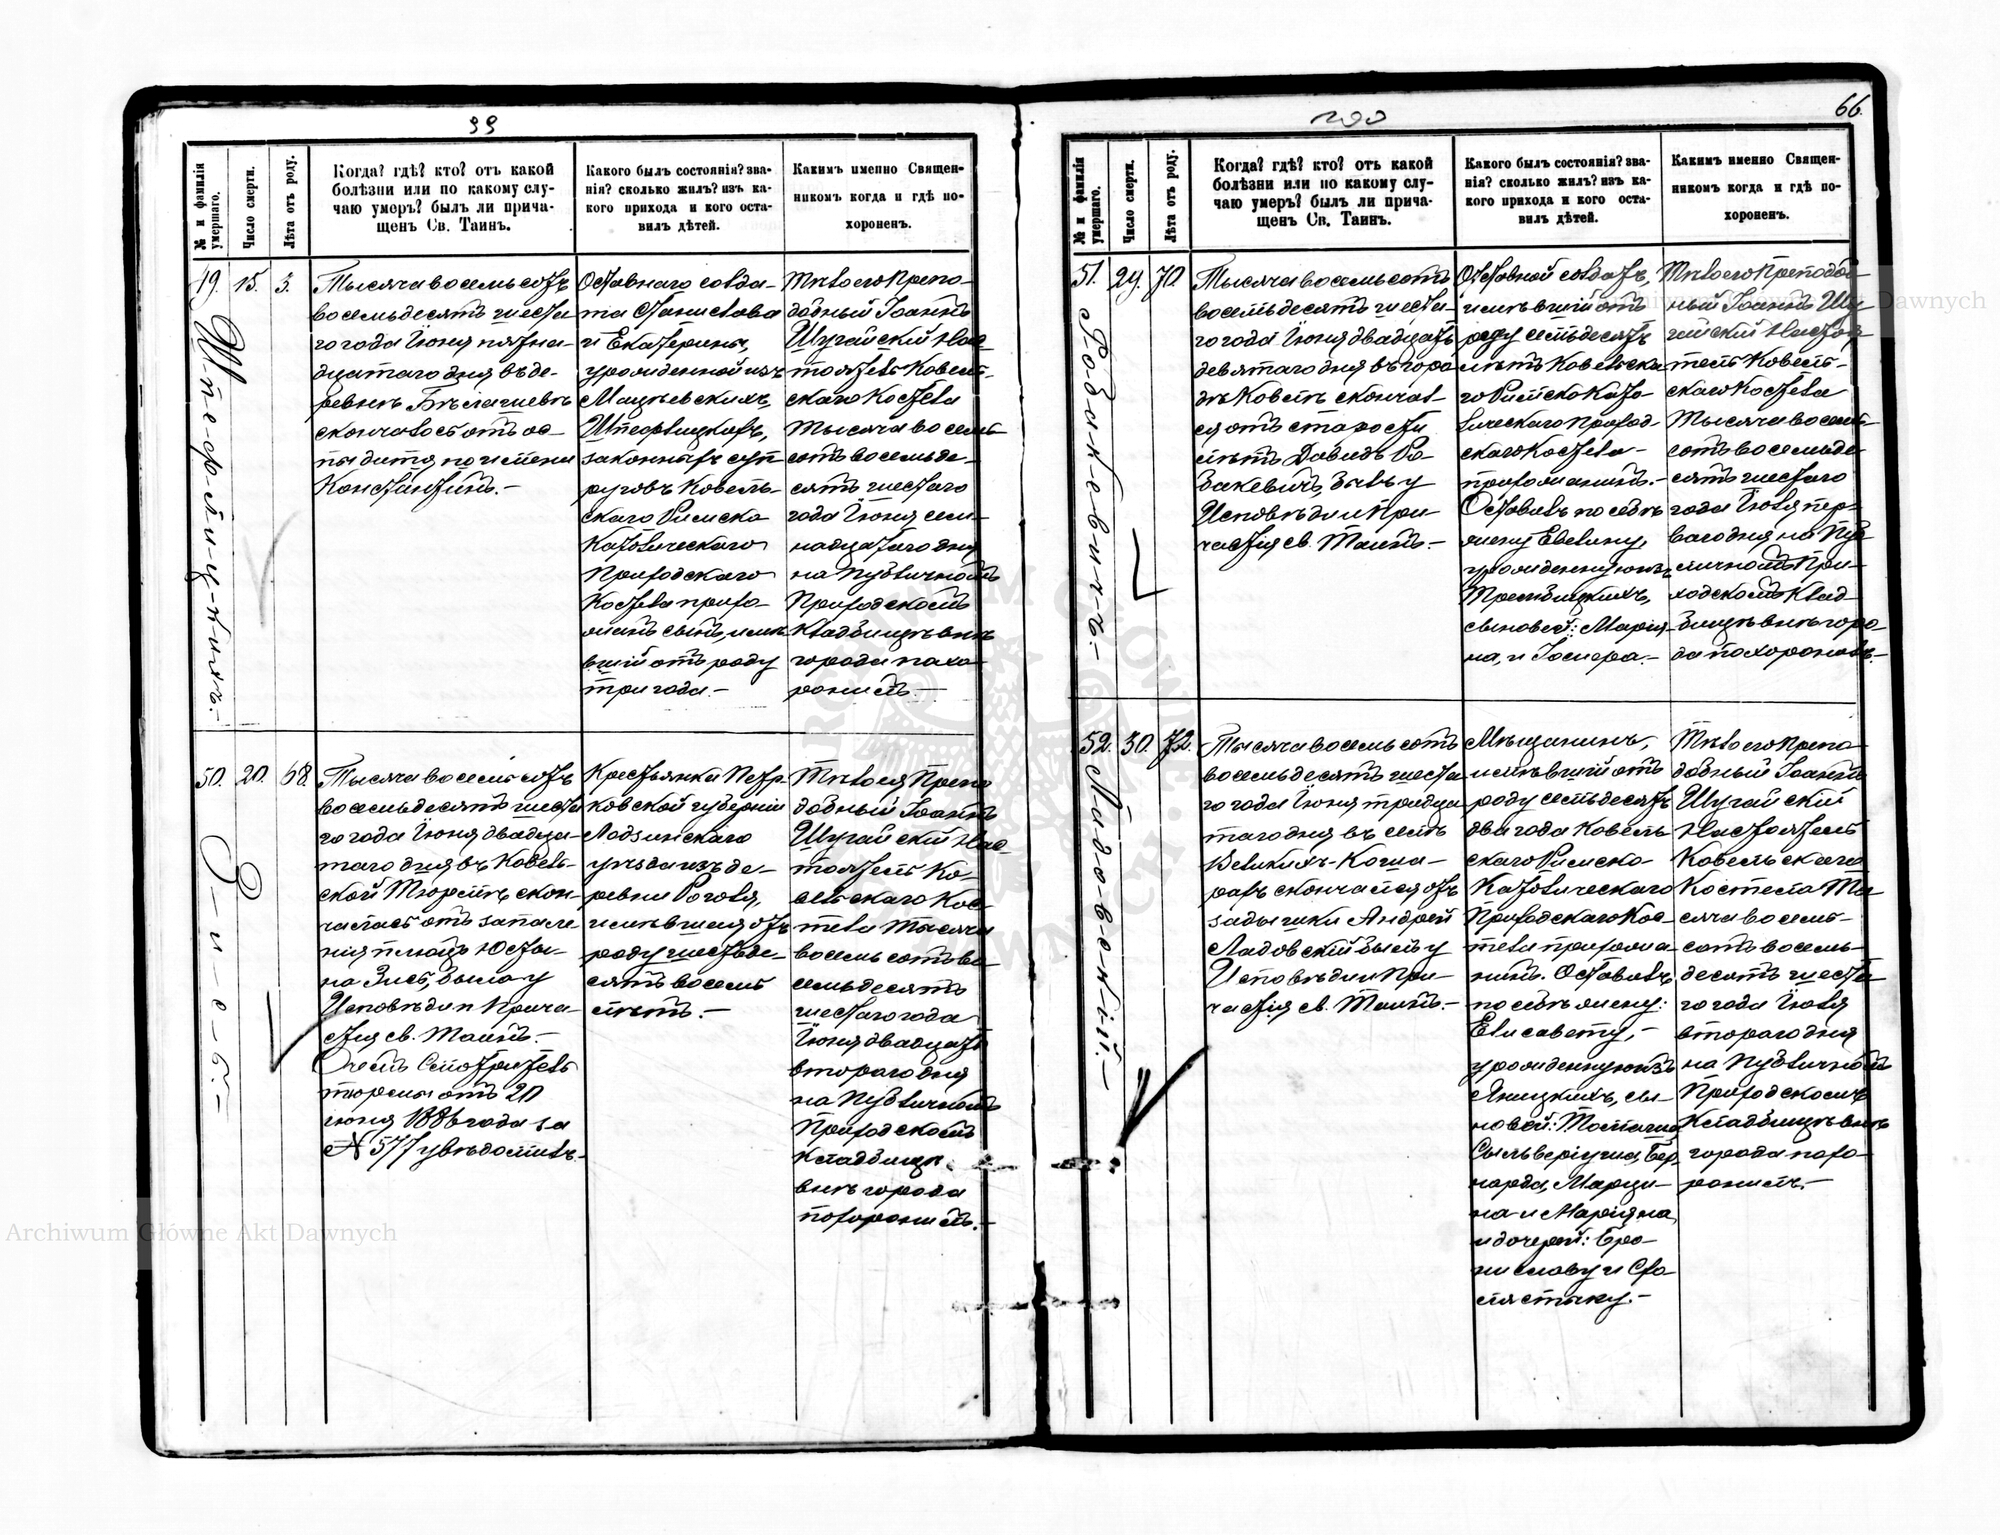 99
№ и фамилія умершаго.
Число смерти.
Лѣта отъ роду.
Когда? гдѣ? кто? отъ какой
болѣзни или по какому слу-
чаю умеръ? былъ ли прича-
щенъ Св. Таинъ.
Какого былъ состоянія? зва-
нія? сколько жилъ? изъ ка-
кого прихода и кого оста-
вилъ дѣтей.
Каким именно Священ-
никомъ когда и гдѣ по-
хороненъ.
49.
15.
3.
Тысяча восемьсотъ
восемьдесятъ шеста-
го года Іюня пятна-
дцатаго дня въ де-
ревнѣ
скончалось отъ ос-
пы дитя по имени
Константинъ.-
Отставнаго солда-
та Станислава
и Екатерины,
урожденной изъ
законныхъ суп-
руговъ Ковель-
скаго Римско
Католическаго
Приходскаго
Костела прихо-
жанъ сынъ, имѣ-
вшій отъ роду
три года.-
Тѣло его Препо-
добный Іоаннъ
Шугайскій Нас-
тоятель Ковель-
скаго Костела
тысяча восемь
сотъ восемьде-
сятъ шестаго
года Іюня сем-
надцатаго дня
на Публичномъ
Приходскомъ
Кладбищѣ внѣ
города похо-
ронилъ.-
50.
20.
68.
З-и-с-ь.=
Тысяча восемьсотъ
восемьдесятъ шеста
го года Іюня двадца-
таго дня въ Ковель-
ской Тюрьмѣ скон-
чалась отъ запале
нія плюцъ Юсты-
на Зись, была у
Исповѣди и Прича-
стія св. Таинъ.-
О чемъ Смотритель
тюрьмы отъ 20
июня 1886 года за
№ 577 увѣдомилъ.-
Крестьянка Петр-
ковской губерніи
Лодзинскаго
уѣзда изъ де-
ревни Рогова,
имѣвшая отъ
роду шестьде-
сятъ восемь
лѣтъ.-
Тѣло ея Препо
добный Іоаннъ
Шугайскій Нас-
тоятель Ко-
вельскаго Кос-
тела Тысяча
восемь сотъ во-
семьдесятъ
шестаго года
Іюня двадцать
втораго дня
на Публичномъ
Приходскомъ
Кладбищѣ
внѣ города
похоронилъ.-
66.
№ и фамилія умершаго.
Число смерти.
Лѣта отъ роду.
Когда? гдѣ? кто? отъ какой
болѣзни или по какому слу-
чаю умеръ? былъ ли прича-
щенъ Св. Таинъ.
Какого былъ состоянія? зва-
нія? сколько жилъ? изъ ка-
кого прихода и кого оста-
вилъ дѣтей.
Каким именно Священ-
никомъ когда и гдѣ по-
хороненъ.
51.
29.
70.
Тысяча восемьсотъ
восемьдесятъ шеста-
го года Іюня двадцать
девятаго дня въ горо
дѣ Ковелѣ скончал-
ся отъ старости
лѣтъ Давидъ
былъ у
Исповѣди и При-
частія св. Таинъ.-
Отставной солдатъ,
имѣвшій отъ
роду семьдесятъ
лѣтъ Ковельска
го Римско Като-
лическаго Приход-
скаго Костела-
прихожанинъ.-
Оставилъ по себѣ
жену Евелину,
урожденную изъ
сыновей: Марія-
на, и
Тѣло его Преподоб-
ный Іоаннъ Шу-
гайскій Настоя-
тель Ковель-
скаго Костела
Тысяча восемь
сотъ восемьде-
сятъ шестаго
года Іюля пер-
ваго дня на Пуб-
личномъ При-
ходскомъ Клад-
бищѣ внѣ горо-
да похоронилъ.-
52.
30.
72.
Тысяча восемьсотъ
восемьдесятъ шеста
го года Іюня тридца
таго дня въ селѣ
Великихъ-Коша-
рахъ скончался отъ
задышки Андрей
Ладовскій былъ у
Исповѣди и При-
частія св. Таинъ.-
Мѣщанинъ,
имѣвшій отъ
роду семьдесятъ
два года Ковель-
скаго Римско-
Католическаго
Приходскаго Кос-
тела прихожа-
нинъ. Оставилъ
по себѣ жену:
Елисавету,-
урожденную изъ
сы-
новей:
Бер-
нарда, Марци-
на и Маріяна,
и дочерей: Бро-
ниславу и Схо-
лястыку.-
Тѣло его Препо-
добный Іоаннъ
Шугайскій
Настоятель
Ковельскаго
Костела Ты-
сяча восемь-
сотъ восемь-
десятъ шеста
го года Іюля
втораго дня
на Публичномъ
Приходскомъ
Кладбищѣ внѣ
города похо-
ронилъ.-
Archiwum Główne Akt Dawnych